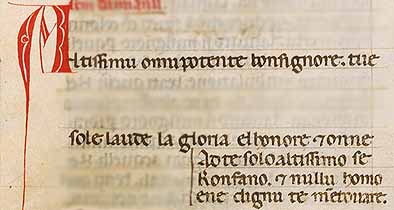 Altissimu omnipotente bonsignore. tue
sole laude la gloria elhonore ⁊ onne
Adte solo altissimo se
Konfano. ⁊ nullu homo
ene dignu te mẽtovare.